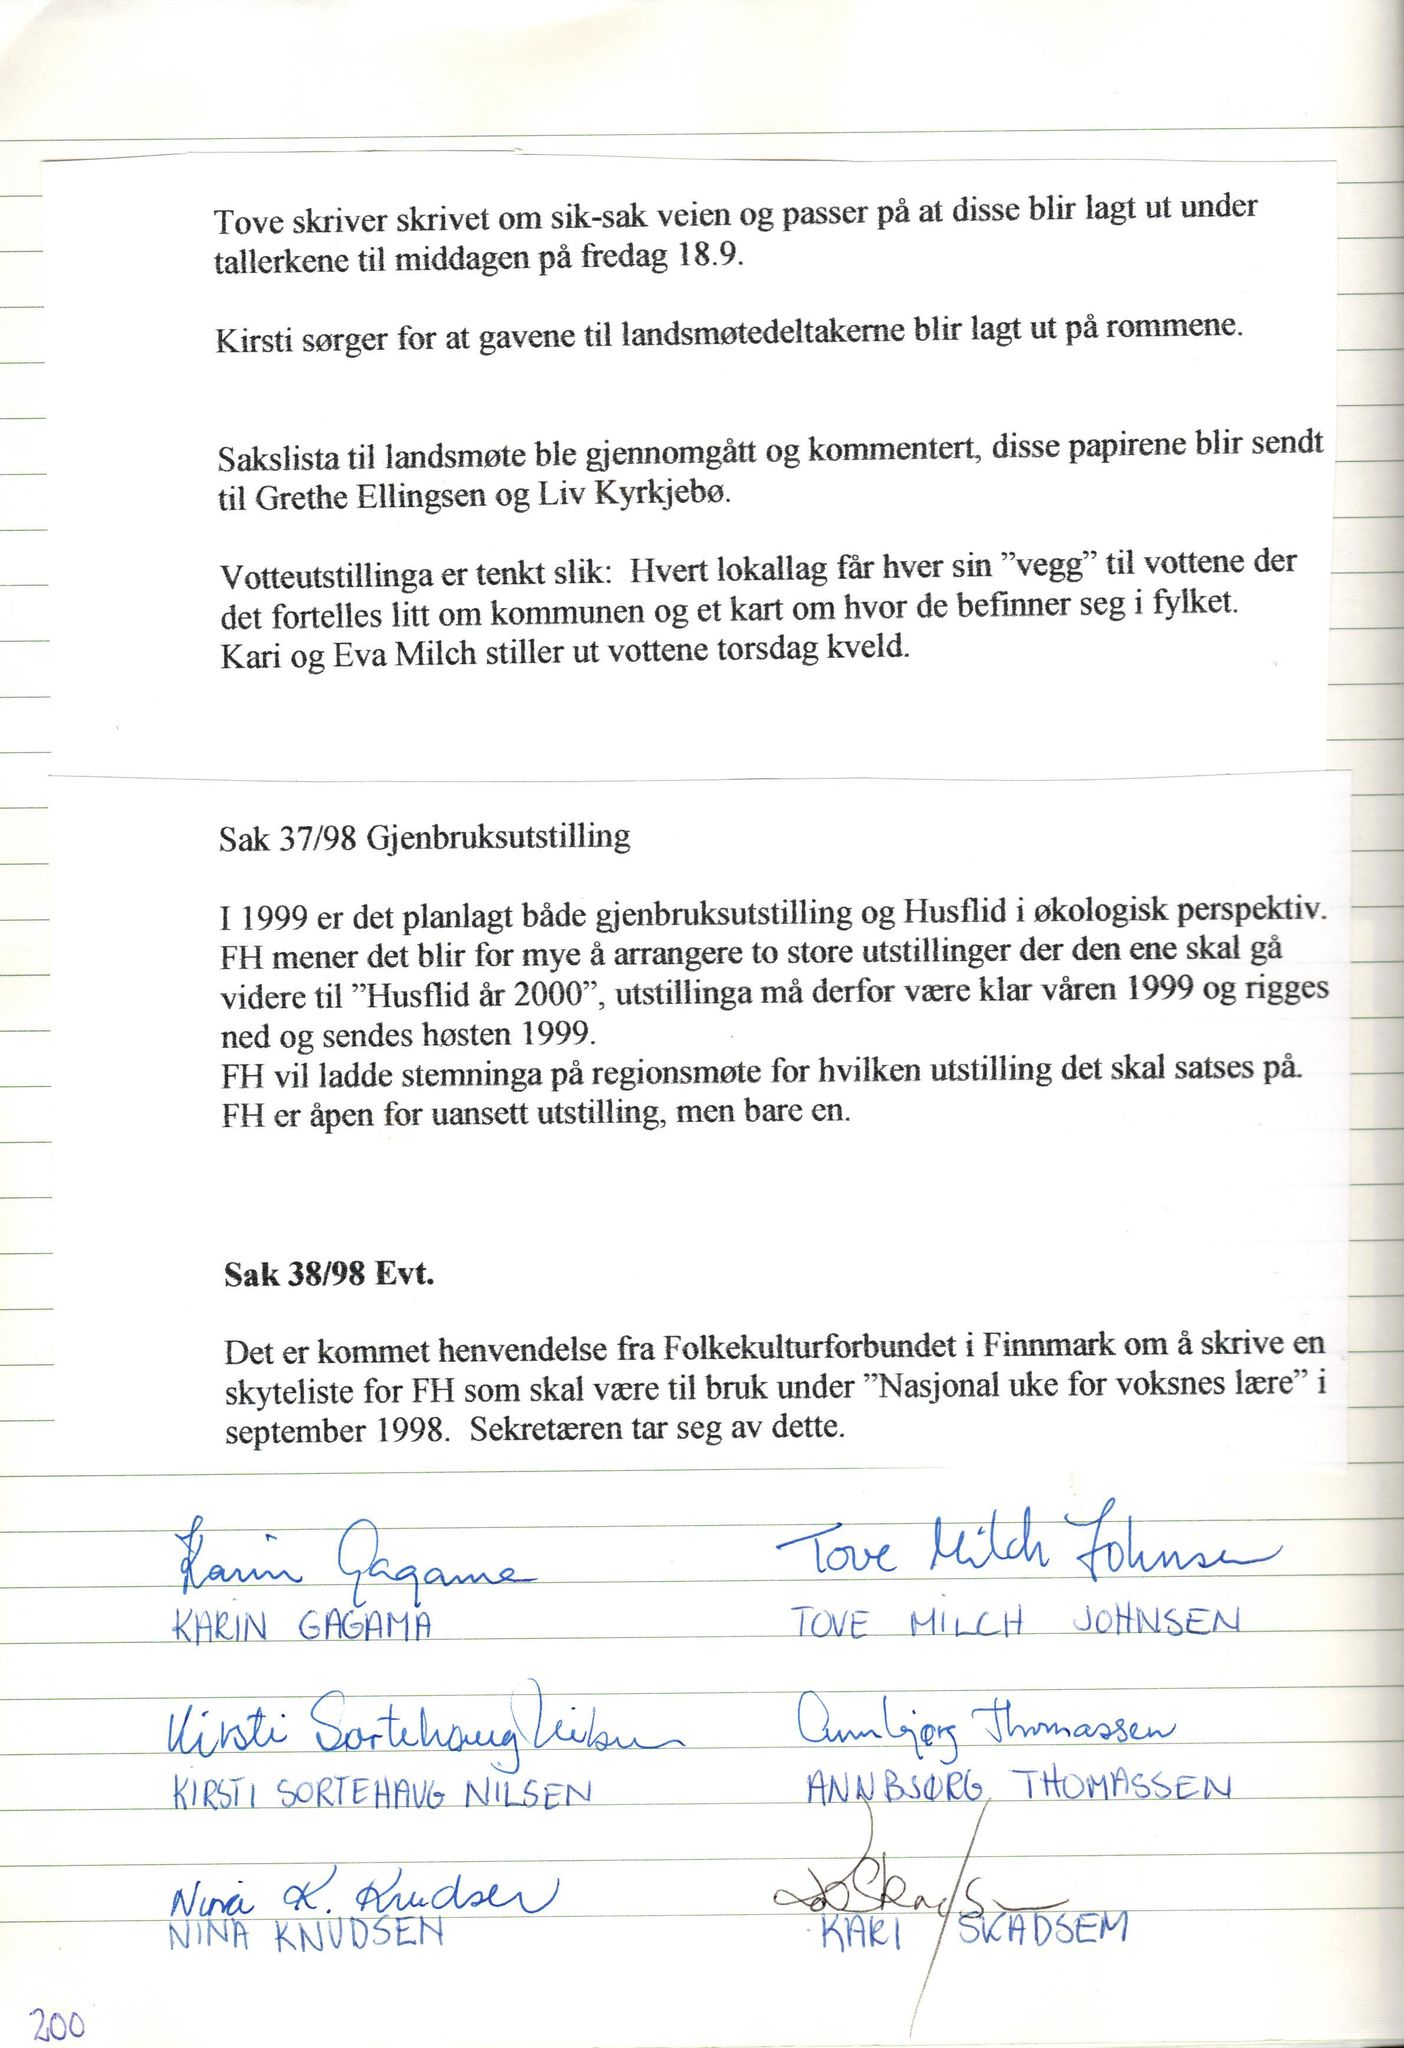 Tove skriver skrivet om sik-sak veien og passer på at disse blir lagt ut under
tallerkene til middagen på fredag 18.9.
Kirsti sørger for at gavene til landsmøtedeltakerne blir lagt ut på rommene.
Sakslista til landsmøte ble gjennomgått og kommentert, disse papirene blir sendt
til Grethe Ellingsen og Liv Kyrkjebø.
Votteutstillinga er tenkt slik:  Hvert lokallag får hver sin ”vegg” til vottene der
det fortelles litt om kommunen og et kart om hvor de befinner seg i fylket.
Kari og Eva Milch stiller ut vottene torsdag kveld.
Sak 37/98 Gjenbruksutstilling
I 1999 er det planlagt både gjenbruksutstilling og Husflid i økologisk perspektiv.
FH mener det blir for mye å arrangere to store utstillinger der den ene skal gå
videre til ”Husflid år 2000”, utstillinga må derfor være klar våren 1999 og rigges
ned og sendes høsten 1999.
FH vil ladde stemninga på regionsmøte for hvilken utstilling det skal satses på.
FH er åpen for uansett utstilling, men bare en.
Sak 38/98 Evt.
Det er kommet henvendelse fra Folkekulturforbundet i Finnmark om å skrive en
skyteliste for FH som skal være til bruk under ”Nasjonal uke for voksnes lære” i
september 1998.  Sekretæren tar seg av dette.
Karin Gagama Tove Milch Johnsen
KARIN GAGAMA TOVE MILCH JOHNSEN
Kirsti Sortehaug Nilsen Annbjørg Thomassen
KIRSTI SORTEHAUG NILSEN ANNBJØRG THOMASSEN
Nina K. Knudsen
NINA KNUDSEN KARI SKADSEM
200